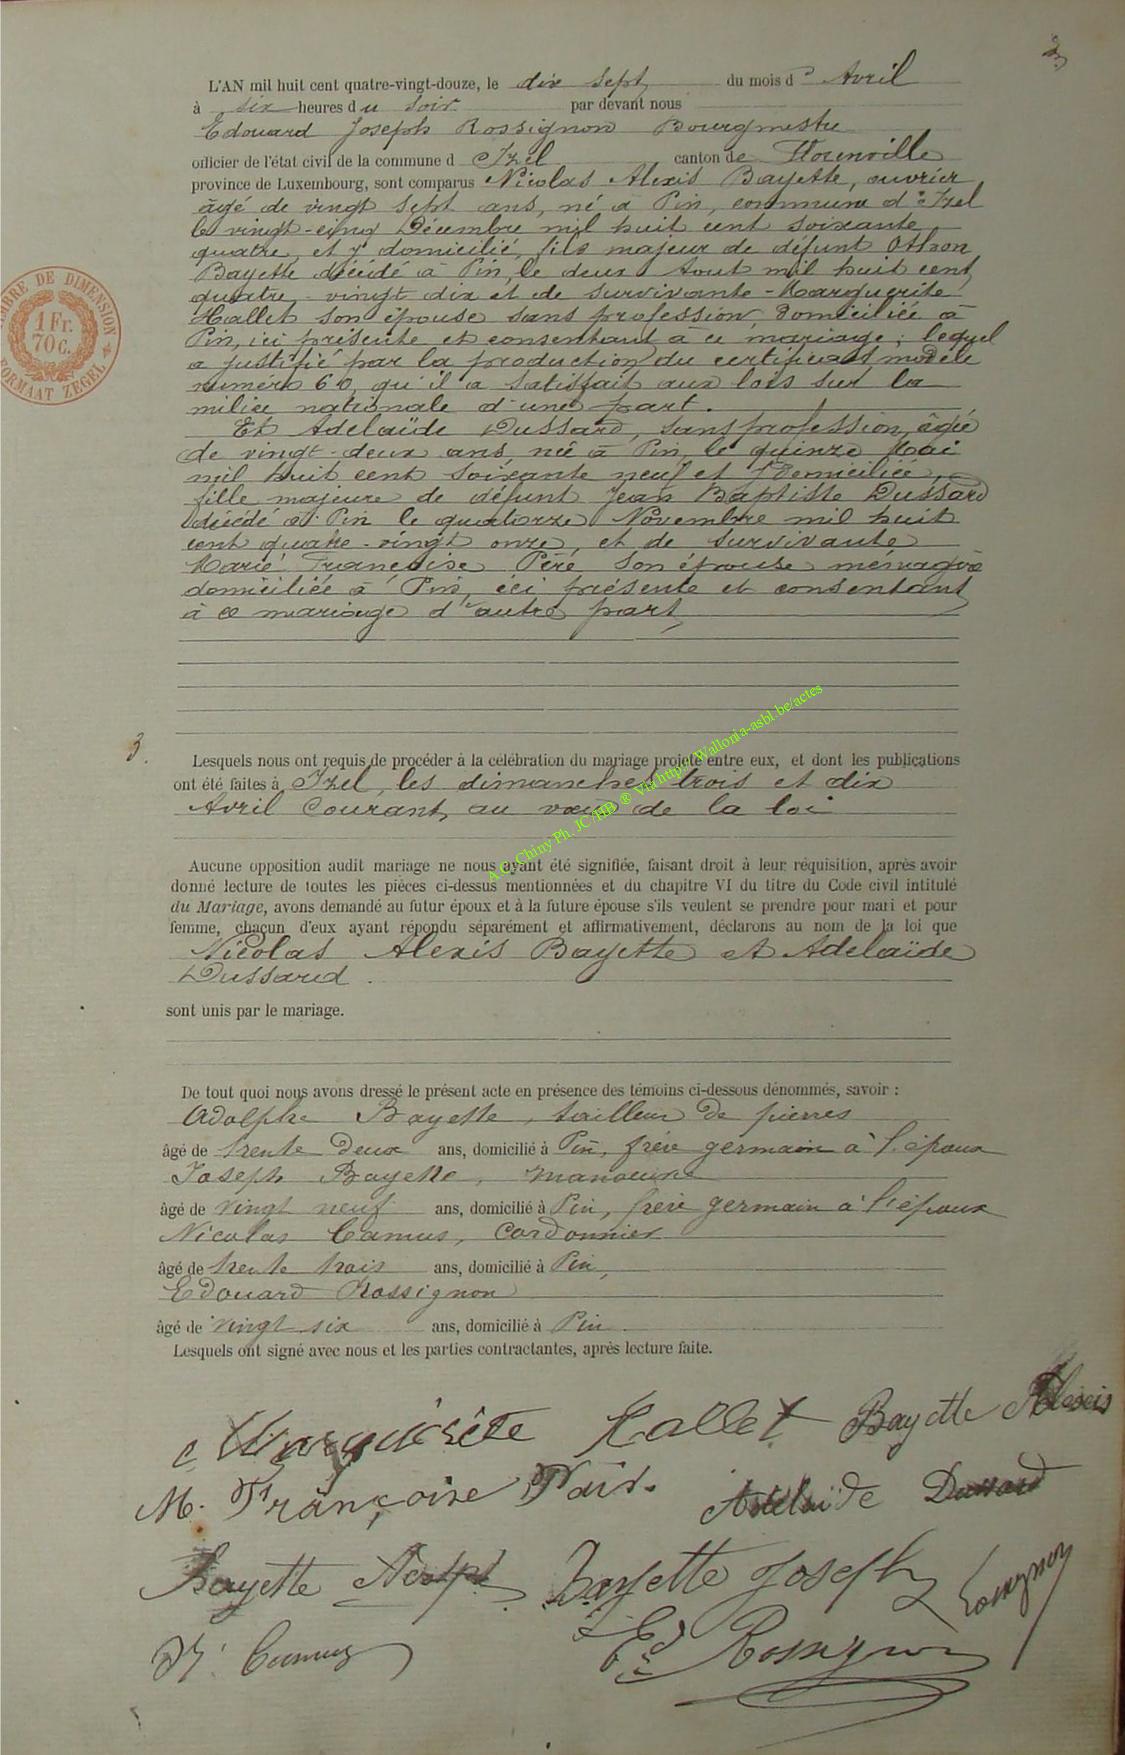 3
L'AN mil huit cent quatre-vingt-douze, le dix sept du mois d' Avril
à six heures du soir par devant nous
Edouard Joseph Rossignon Bourgmestre
officier de l'état civil de la commune d Izel, canton de Florenville
province de Luxembourg, sont comparus Nicolas Alexis Bayette, ouvrier
âgé de vingt sept ans, né à Pin, commune d'Izel
le vingt-cinq Décembre mil huit cent soixante
quatre, et y domicilié, fils majeur de défunt Othon
Bayette décédé à Pin, le deux Aout mil huit cent
quatre-vingt dix et de survivante Marguerite
Hallet son épouse sans profession, domiciliée à
Pin, ici présente et consentant à ce mariage; lequel
a justifié par la production du certificat modèle
numéro 60, qu'il a satisfait aux lois sur la
milice nationale d'une part.
Et Adelaïde Dussard, sans profession, âgée
de vingt-deux ans, née à Pin, le quinze Mai
mil huit cent soixante neuf et y domiciliée,
fille majeure de défunt Jean Baptiste Dussard
décédé à Pin le quatorze Novembre mil huit
cent quatre-vingt onze, et de survivante
Marie Françoise Péré son épouse ménagère
domiciliée à Pin, ici présente et consentant
à ce mariage d'autre part
3.
Lesquels nous ont requis de procéder à la célébration du mariage projeté entre eux, et dont les publications
ont été faites à Izel, les dimanches trois et dix
Avril courant, au vœu de la loi
Aucune opposition audit mariage ne nous ayant été signifiée, faisant droit à leur réquisition, après avoir
donné lecture de toutes les pièces ci-dessus mentionnées et du chapitre VI du titre du Code civil intitulé
du Mariage, avons demandé au futur époux et à la future épouse s'ils veulent se prendre pour mari et pour
femme, chacun d'eux ayant répondu séparément et affirmativement, déclarons au nom de la loi que
Nicolas Alexis Bayette et Adelaïde
Dussard.
sont unis par le mariage.
De tout quoi nous avons dressé le présent acte en présence des témoins ci-dessous dénommés, savoir :
Adolphe Bayette, tailleur de pierres
âgé de trente deux ans, domicilié à Pin, frère germain à l'époux
Joseph Bayette, manœuvre
âgé de vingt neuf ans, domicilié à Pin, frère germain à l'époux
Nicolas Camus, cordonnier
âgé de trente trois ans, domicilié à Pin,
Edouard Rossignon
âgé de vingt six ans, domicilié à Pin.
Lesquels ont signé avec nous et les parties contractantes, après lecture faite.
Marguérite Hallet Bayette Alexis
M. Françoise Pair. Adelaïde Dussard
Bayette Adolph Bayette Joseph Rossignon
N. Camus Ed Rossignon
TIMBRE DE DIMENSION
1 Fr.
70 c.
FORMAAT ZEGEL
A.C. Chiny Ph. JC/HB ® Via http://Wallonia-asbl.be/actes